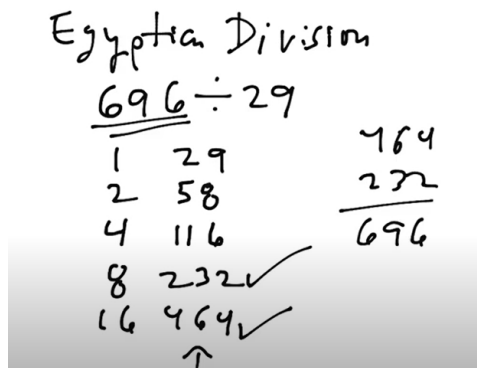 Egyptian Division
696 ÷ 29
1 29
2 58
4 116
8 232 ✓
16 464 ✓
↑
464
232
696